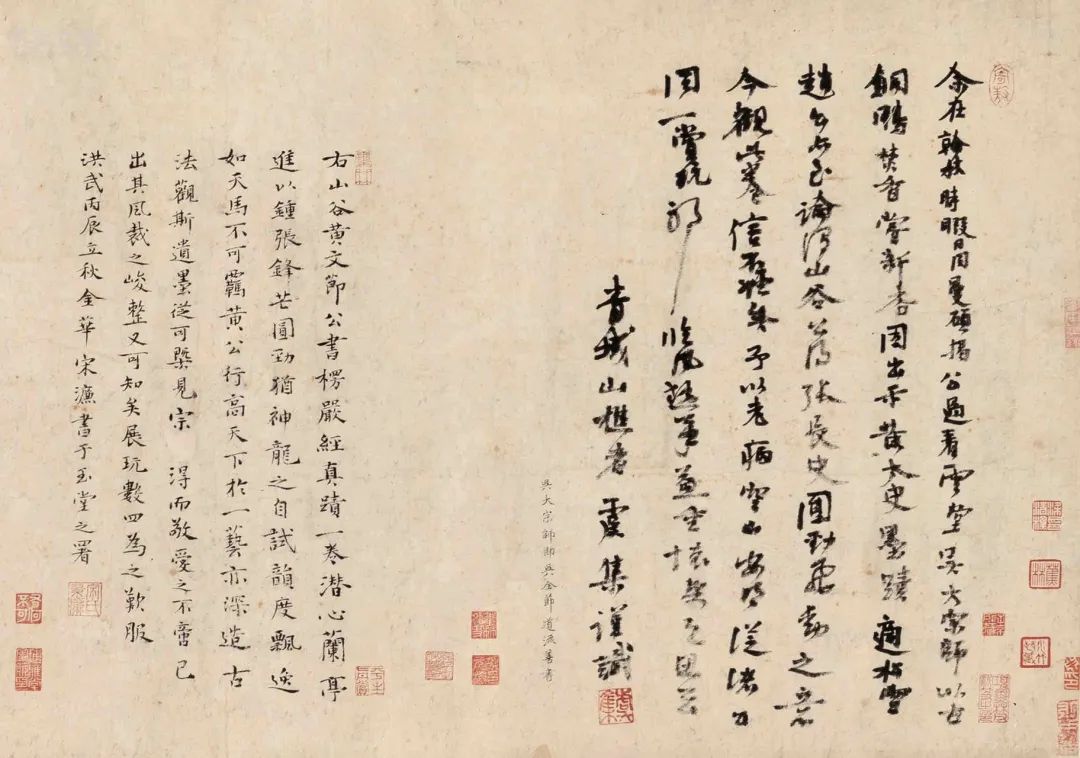 余在翰林時暇日同曼碩揭公過看雲堂吳大宗師以古
銅鴨焚香嘗新杏因出示黃太史墨蹟適松雪
趙公亦至論得山谷草張長史圓勁飛動之意
今觀此卷信知予以老病空山安得從諸公
同一賞玩耶臨風慨無已
青城山樵者虞集謹識
吳大宗師即吳全節道流善書
右山谷黃文節公書楞嚴經真蹟一卷潛心蘭亭
進以鍾張鋒芒圓勁猶神龍之自試韻度飄逸
如天馬不可羈黃公行高天下於一藝亦深造古
法觀斯遺墨從可槩見宗 得而敬愛之不啻已
出其風裁之峻整又可知矣展玩數四為之歎服
洪武丙辰立秋金華宋濂書于玉堂之署